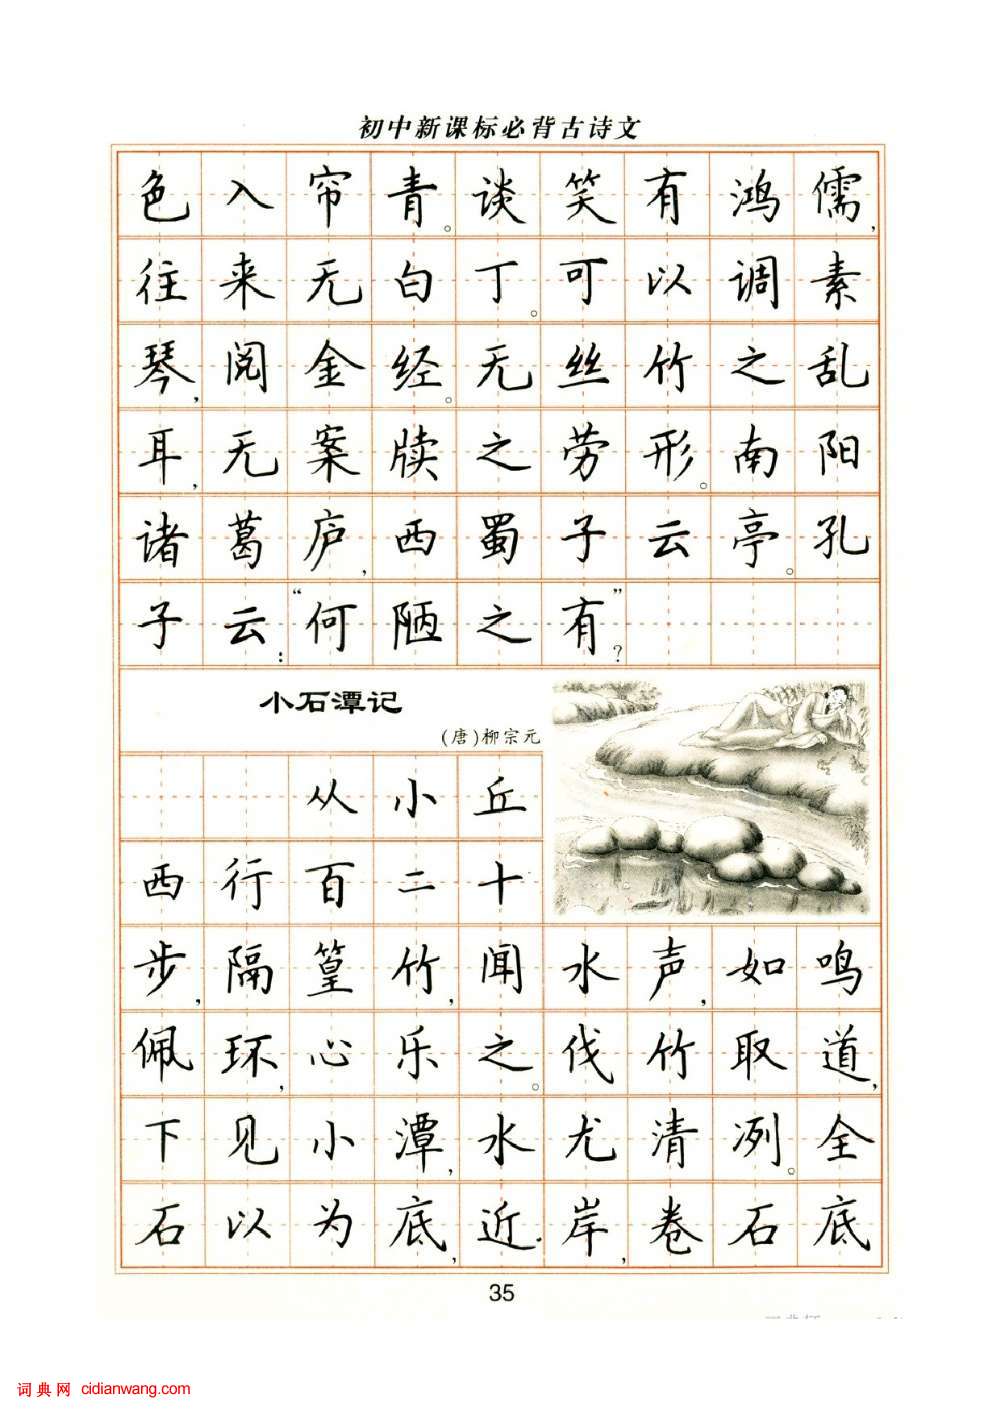 初中新课标必背古诗文
色入帘青。谈笑有鸿儒,
往来无白丁。可以调素
琴,阅金经。无丝竹之乱
耳,无案牍之劳形。南阳
诸葛庐,西蜀子云亭。孔
子云:“何陋之有”?
小石潭记
(唐)柳宗元
从小丘
西行百二十
步,隔篁竹,闻水声,如鸣
佩环,心乐之。伐竹取道,
下见小潭,水尤清冽。全
石以为底,近岸,卷石底
35
词典网 cidianwang.com